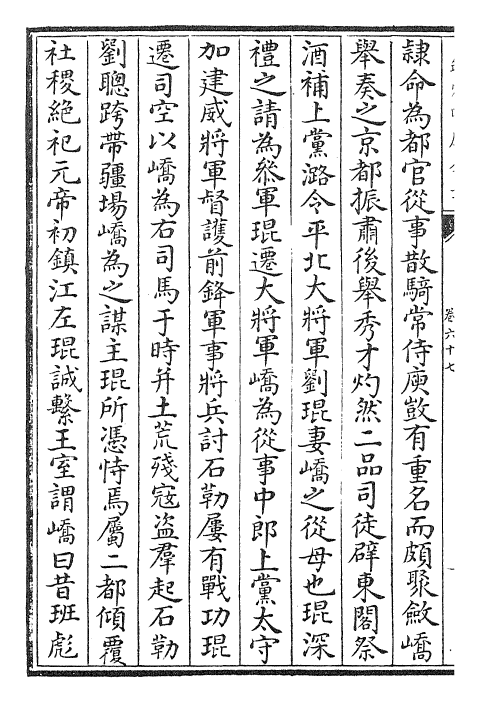 隷命為都官從事散騎常侍庾敳有重名而頗聚斂嶠
舉奏之京都振肅後舉秀才灼然二品司徒辟東閣祭
酒補上黨潞令平北大將軍劉琨妻嶠之從母也琨深
禮之請為叅軍琨遷大將軍嶠為從事中郎上黨太守
加建威將軍督護前鋒軍事將兵討石勒屢有戰功琨
遷司空以嶠為右司馬于時并土荒殘寇盗羣起石勒
劉聰跨帶疆場嶠為之謀主琨所憑恃焉屬二都傾覆
社稷絶祀元帝初鎮江左琨誠繫王室謂嶠曰昔班彪
卷六十七